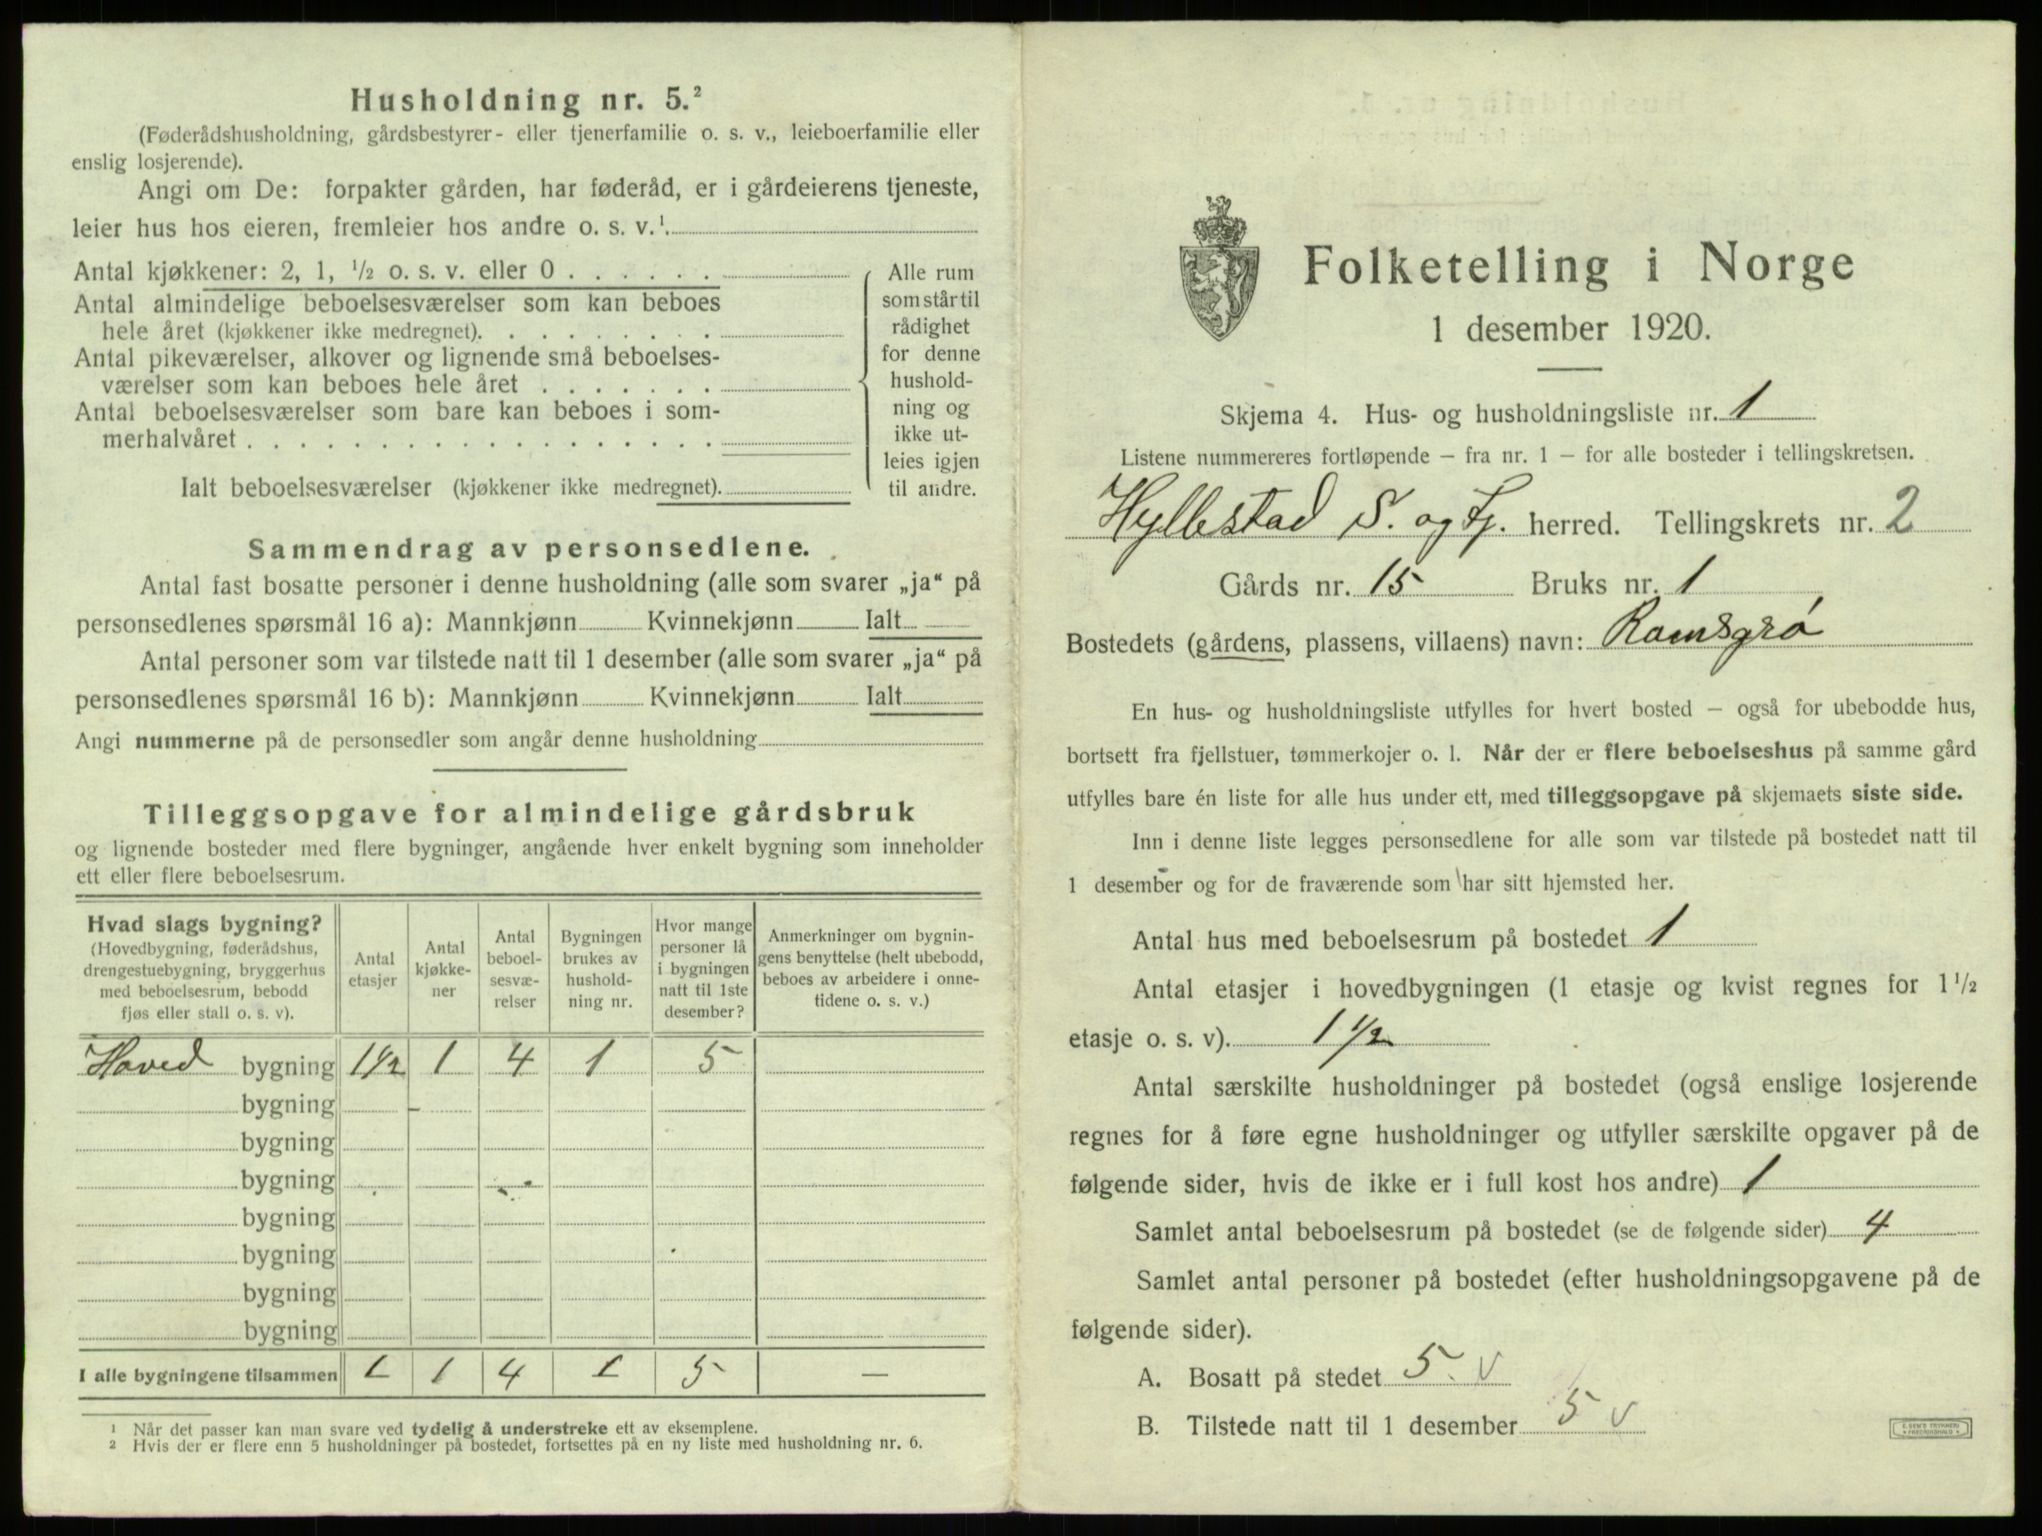 Husholdning nr. 5.²
(Føderådshusholdning, gårdsbestyrer- eller tjenerfamilie o. s. v., leieboerfamilie eller
enslig losjerende).
Angi om De: forpakter gården, har føderåd, er i gårdeierens tjeneste,
leier hus hos eieren, fremleier hos andre o. s. v.¹.
Antal kjøkkener: 2, 1, ½ o. s. v. eller 0 . . . . . .
Antal almindelige beboelsesværelser som kan beboes
hele året (kjøkkener ikke medregnet). . . . . . . . .
Antal pikeværelser, alkover og lignende små beboelses-
værelser som kan beboes hele året . . . . . . .
Antal beboelsesværelser som bare kan beboes i som-
merhalvåret . . . . . . . . . . . . . . . . . .
Ialt beboelsesværelser (kjøkkener ikke medregnet).
Alle rum
som står til
rådighet
for denne
hushold-
ning og
ikke ut-
leies igjen
til andre.
Sammendrag av personsedlene.
Antal fast bosatte personer i denne husholdning (alle som svarer „ja“ på
personsedlenes spørsmål 16 a): Mannkjønn Kvinnekjønn Ialt
Antal personer som var tilstede natt til 1 desember (alle som svarer „ja“ på
personsedlenes spørsmål 16 b): Mannkjønn Kvinnekjønn Ialt
Angi nummerne på de personsedler som angår denne husholdning
Tilleggsopgave for almindelige gårdsbruk
og lignende bosteder med flere bygninger, angående hver enkelt bygning som inneholder
ett eller flere beboelsesrum.
Hvad slags bygning?
(Hovedbygning, føderådshus,
drengestuebygning, bryggerhus
med beboelsesrum, bebodd
fjøs eller stall o. s. v).
Antal
etasjer
Antal
kjøkke-
ner
Antal
beboel-
sesvæ-
relser
Bygningen
brukes av
hushold-
ning nr.
Hvor mange
personer lå
i bygningen
natt til 1ste
desember?
Anmerkninger om bygnin-
gens benyttelse (helt ubebodd,
beboes av arbeidere i onne-
tidene o. s. v.)
Hoved bygning 1½ 1 4 1 5
bygning -
bygning
bygning
bygning
bygning
bygning
bygning
I alle bygningene tilsammen 1 1 4 1 5 —
¹ Når det passer kan man svare ved tydelig å understreke ett av eksemplene.
² Hvis der er flere enn 5 husholdninger på bostedet, fortsettes på en ny liste med husholdning nr. 6.
Folketelling i Norge
1 desember 1920.
Skjema 4. Hus- og husholdningsliste nr. 1
Listene nummereres fortløpende – fra nr. 1 – for alle bosteder i tellingskretsen.
Hyllestad S. og Fj. herred. Tellingskrets nr. 2
Gårds nr. 15 Bruks nr. 1
Bostedets (gårdens, plassens, villaens) navn: Ramsgrø
En hus- og husholdningsliste utfylles for hvert bosted – også for ubebodde hus,
bortsett fra fjellstuer, tømmerkojer o. l. Når der er flere beboelseshus på samme gård
utfylles bare én liste for alle hus under ett, med tilleggsopgave på skjemaets siste side.
Inn i denne liste legges personsedlene for alle som var tilstede på bostedet natt til
1 desember og for de fraværende som har sitt hjemsted her.
Antal hus med beboelsesrum på bostedet 1
Antal etasjer i hovedbygningen (1 etasje og kvist regnes for 1½
etasje o. s. v). 1½
Antal særskilte husholdninger på bostedet (også enslige losjerende
regnes for å føre egne husholdninger og utfyller særskilte opgaver på de
følgende sider, hvis de ikke er i full kost hos andre) 1
Samlet antal beboelsesrum på bostedet (se de følgende sider) 4
Samlet antal personer på bostedet (efter husholdningsopgavene på de
følgende sider).
A. Bosatt på stedet 5 v
B. Tilstede natt til 1 desember 5 v